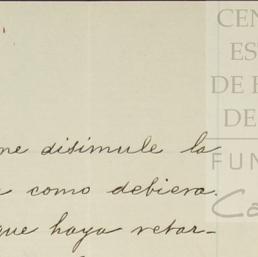 CEN
ES
DE
DE
FUN
Ca
me disimule la
como debiera.
que haya retar-